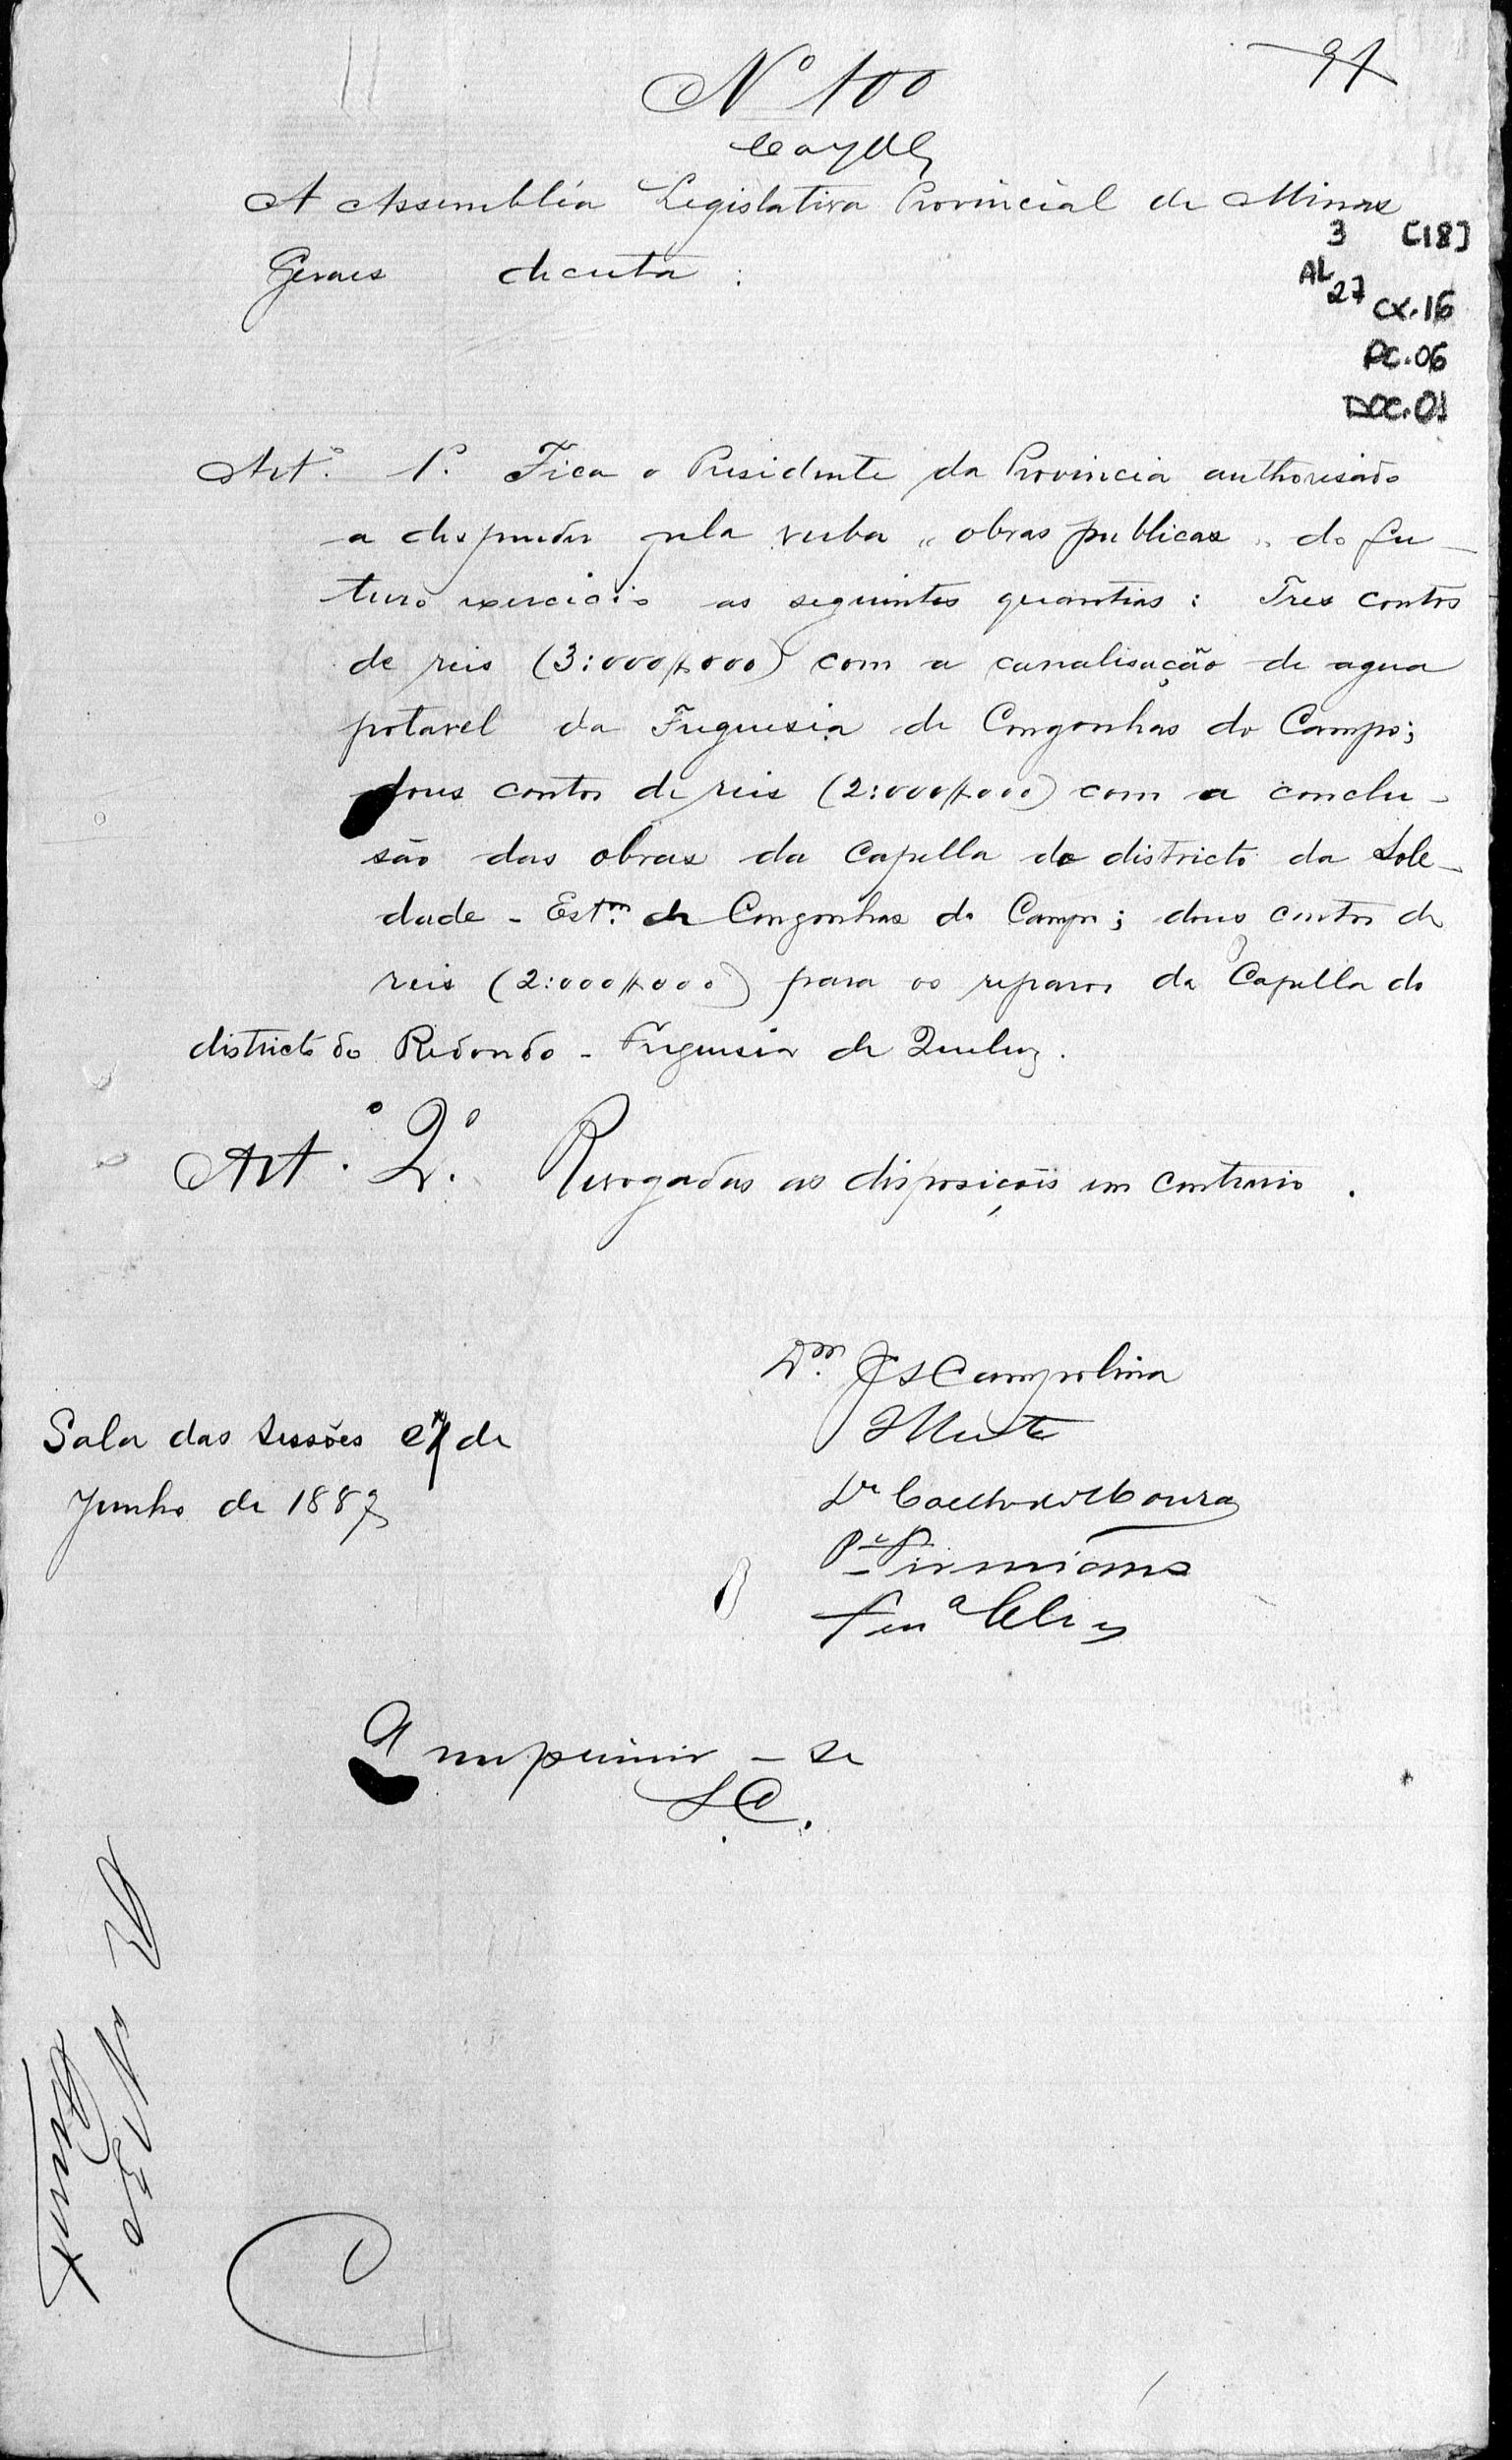 Nº 100
A Assembléa Legislativa Provincial de Minas
3 [18]
Geraes decreta :
AL 27 CX.16
PC.06
DOC.01
Artº. 1º. Fica o Presidente da Provincia authorisado
a despender pela verba „ obras publicas „ do fu-
turo exercicio as seguintes quantias : Tres contos
de reis (3:000$000) com a canalisação de agua
potavel da Freguesia de Congonhas do Campo;
dous contos de reis (2:000$000) com a conclu-
são das obras da Capella do districto da Sole-
dade - Estm. de Congonhas do Campo; dous contos de
reis (2:000$000) para os reparos da Capella do
districto do Redondo - Freguesia de Queluz.
Artº. 2º. Revogadas as disposições em contrario .
Dr. J S Campolina
Sala das Sessões de
Junho de 1887
Dr Coelho de Moura
Pe Firmiano
A imprimir - se
S. C.